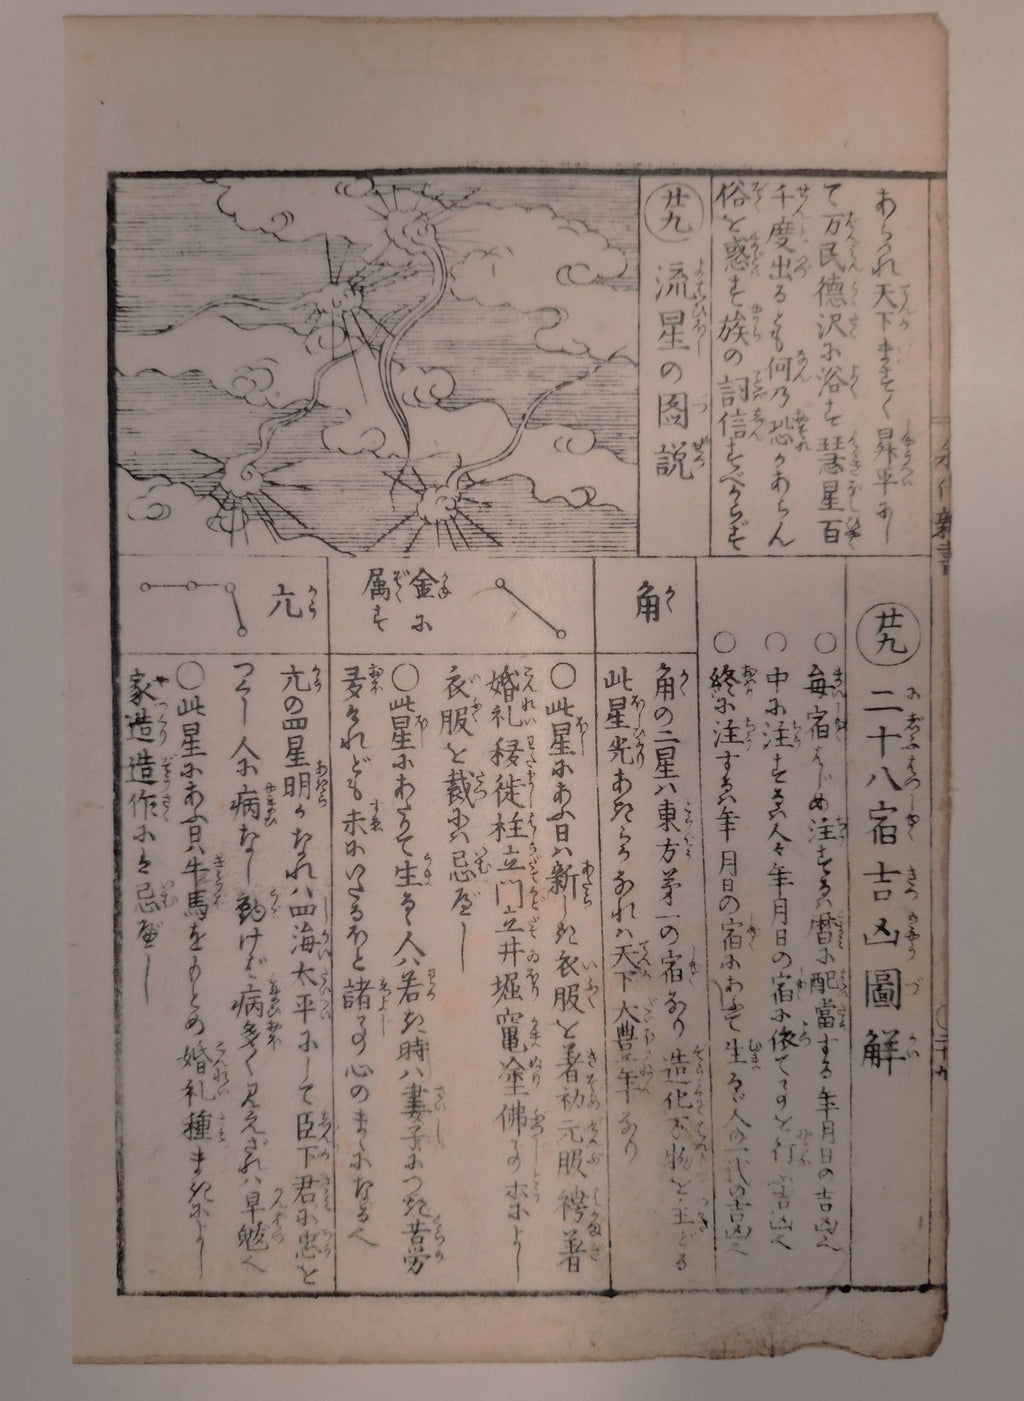 あらハれ天下ますます昇平にし
て万民徳沢に浴す彗星百
千度出るとも何の恐かあらん
俗を惑す族の詞信ずべからず
廿九 流星の図説
廿九 二十八宿吉凶圖解
〇毎宿はじめ注するハ暦に配當する年月日の吉凶也
〇中に注するハ人々年月日の宿に依て事を行ふ吉凶也
〇終に注するハ年月日の宿にあたりて生るゝ人の一代の吉凶也
角
角の二星ハ東方第一の宿なり造化万物を主どる
此星光あきらかなれハ天下大豊年なり
金に
属す
〇此星にあふ日ハ新しき衣服を著初元服袴著
婚礼移徙柱立門立井堀竃塗佛事ホによし
衣服を裁にハ忌べし
〇此星にあたりて生るゝ人ハ若き時ハ妻子につき苦労
多けれども末にいたるほど諸事心のまゝになるべし
亢
亢の四星明かなれハ四海太平にして臣下君に忠を
つくし人に病なし動けば病多く見えざれハ旱魃也
〇此星にあふ日ハ牛馬をもとめ婚礼種まきによし
家造造作にハ忌べし